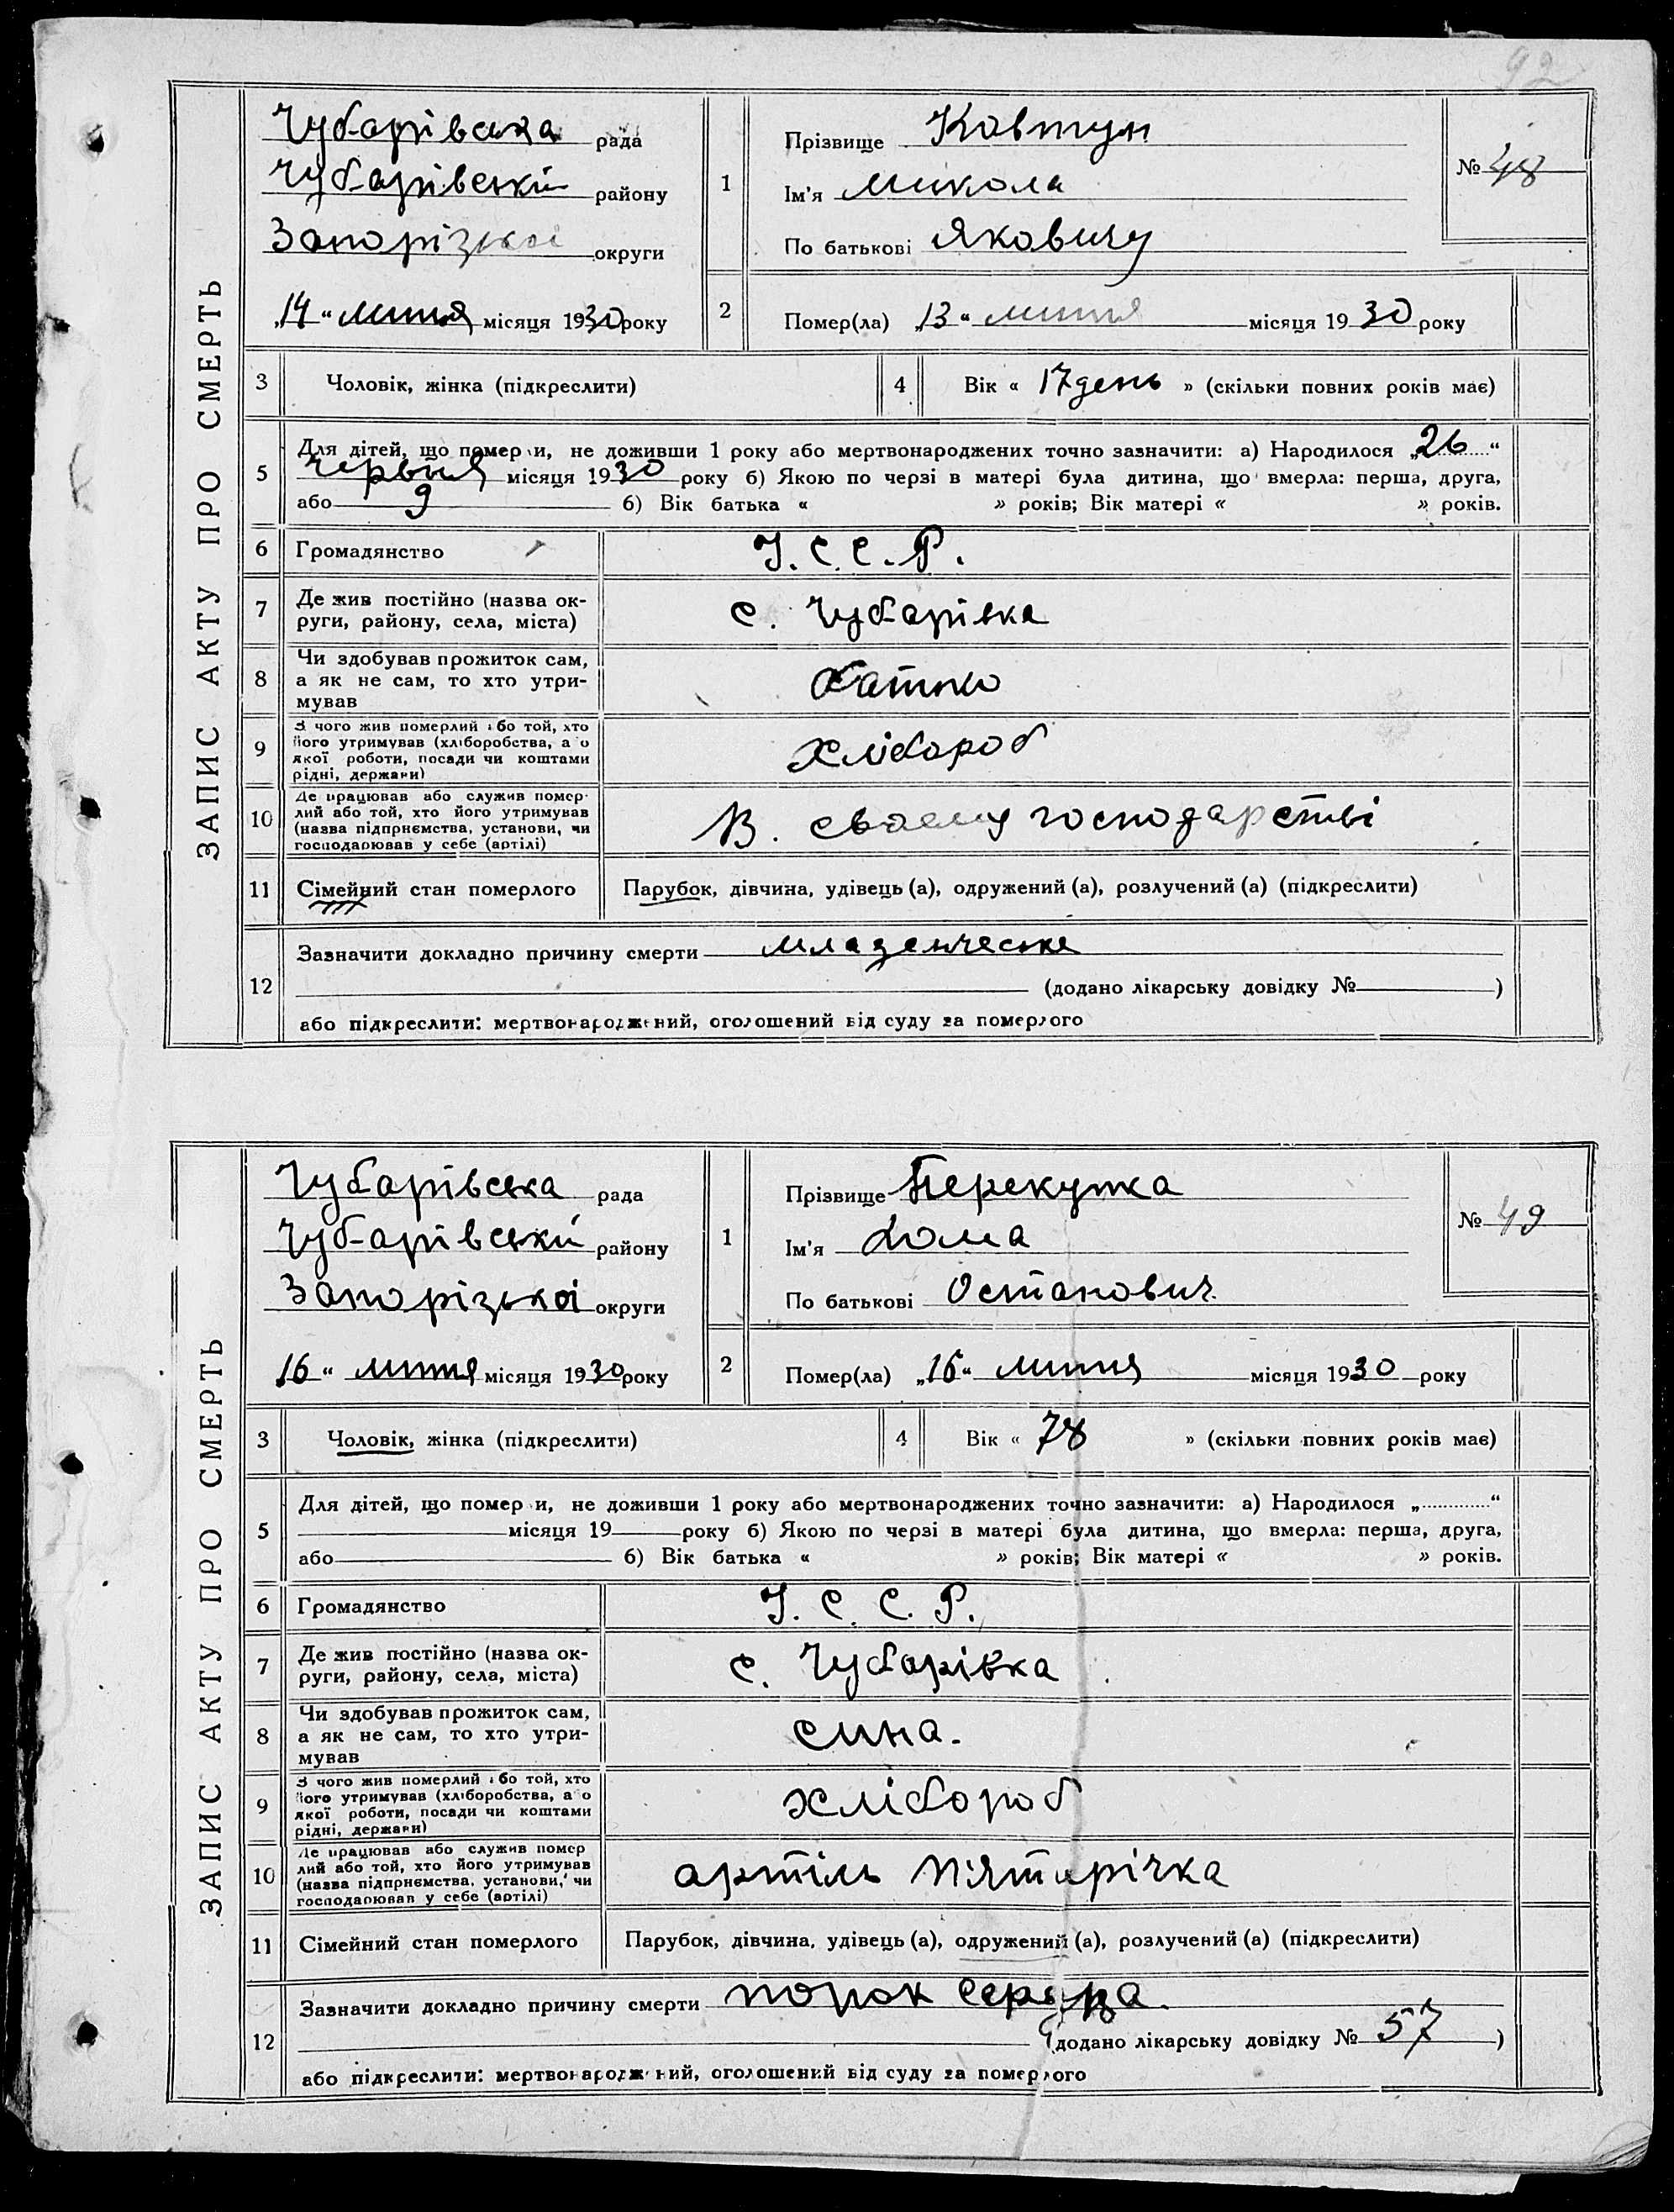 92
ЗАПИС АКТУ ПРО СМЕРТЬ
Чубарівська рада
Чубарівський району
Запорізької округи
„14“ липня місяця 1930 року
1
Прізвище Ковтун
Ім'я Микола
По батькові Якович
№ 48
2
Помер(ла) „13“ липня місяця 1930 року
3 Чоловік, жінка (підкреслити)
4 Вік « 17 день » (скільки повних років має)
5 Для дітей, що померли, не доживши 1 року або мертвонароджених точно зазначити: а) Народилося „26“
червня місяця 1930 року б) Якою по черзі в матері була дитина, що вмерла: перша, друга,
або 9 б) Вік батька « » років; Вік матері « » років.
6 Громадянство У. С. С. Р.
7 Де жив постійно (назва ок-
руги, району, села, міста) с. Чубарівка
8 Чи здобував прожиток сам,
а як не сам, то хто утри-
мував батько
9 З чого жив померлий або той, хто
його утримував (хліборобства, або
якої роботи, посади чи коштами
рідні, держави) хлібороб
10 Де працював або служив помер-
лий або той, хто його утримував
(назва підприємства, установи, чи
господарював у себе (артілі) В. своему господарстві
11 Сімейний стан померлого Парубок, дівчина, удівець (а), одружений (а), розлучений (а) (підкреслити)
12 Зазначити докладно причину смерти младенческе
(додано лікарську довідку № )
або підкреслити: мертвонароджений, оголошений від суду за померлого
ЗАПИС АКТУ ПРО СМЕРТЬ
Чубарівська рада
Чубарівський району
Запорізької округи
16“ липня місяця 1930 року
1
Прізвище Перекупка
Ім'я Хома
По батькові Остапович
№ 49
2
Помер(ла) „15“ липня місяця 1930 року
3 Чоловік, жінка (підкреслити)
4 Вік « 78 » (скільки повних років має)
5 Для дітей, що померли, не доживши 1 року або мертвонароджених точно зазначити: а) Народилося „ “
місяця 19 року б) Якою по черзі в матері була дитина, що вмерла: перша, друга,
або б) Вік батька « » років; Вік матері « » років.
6 Громадянство У. С. С. Р.
7 Де жив постійно (назва ок-
руги, району, села, міста) с. Чубарівка
8 Чи здобував прожиток сам,
а як не сам, то хто утри-
мував сина.
9 З чого жив померлий або той, хто
його утримував (хліборобства, або
якої роботи, посади чи коштами
рідні, держави) хлібороб
10 Де працював або служив помер
лий або той, хто його утримував
(назва підприємства, установи, чи
господарював у себе (артілі) артіль П'ятирічка
11 Сімейний стан померлого Парубок, дівчина, удівець (а), одружений (а), розлучений (а) (підкреслити)
12 Зазначити докладно причину смерти порок серця.
(додано лікарську довідку № 57 )
або підкреслити: мертвонароджений, оголошений від суду за померлого